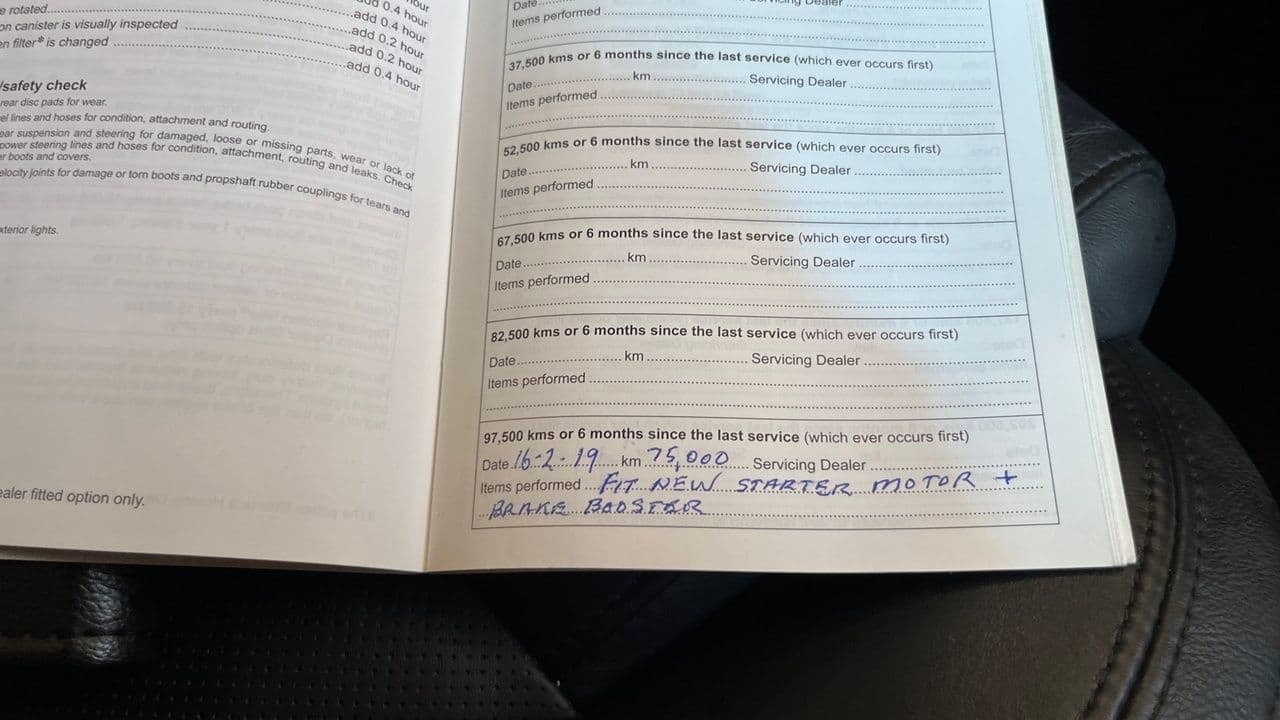 e rotated
on canister is visually inspected
en filter* is changed
hour
add 0.4 hour
add 0.4 hour
add 0.2 hour
add 0.2 hour
add 0.4 hour
/safety check
rear disc pads for wear.
el lines and hoses for condition, attachment and routing.
ear suspension and steering for damaged, loose or missing parts, wear or lack of
power steering lines and hoses for condition, attachment, routing and leaks. Check
er boots and covers.
elocity joints for damage or torn boots and propshaft rubber couplings for tears and
xterior lights.
ealer fitted option only.
Date
Items performed
37,500 kms or 6 months since the last service (which ever occurs first)
Date km Servicing Dealer
Items performed
52,500 kms or 6 months since the last service (which ever occurs first)
Date km Servicing Dealer
Items performed
67,500 kms or 6 months since the last service (which ever occurs first)
Date km Servicing Dealer
Items performed
82,500 kms or 6 months since the last service (which ever occurs first)
Date km Servicing Dealer
Items performed
97,500 kms or 6 months since the last service (which ever occurs first)
Date 16-2-19 km 75,000 Servicing Dealer
Items performed FIT NEW STARTER MOTOR +
BRAKE BOOSTER